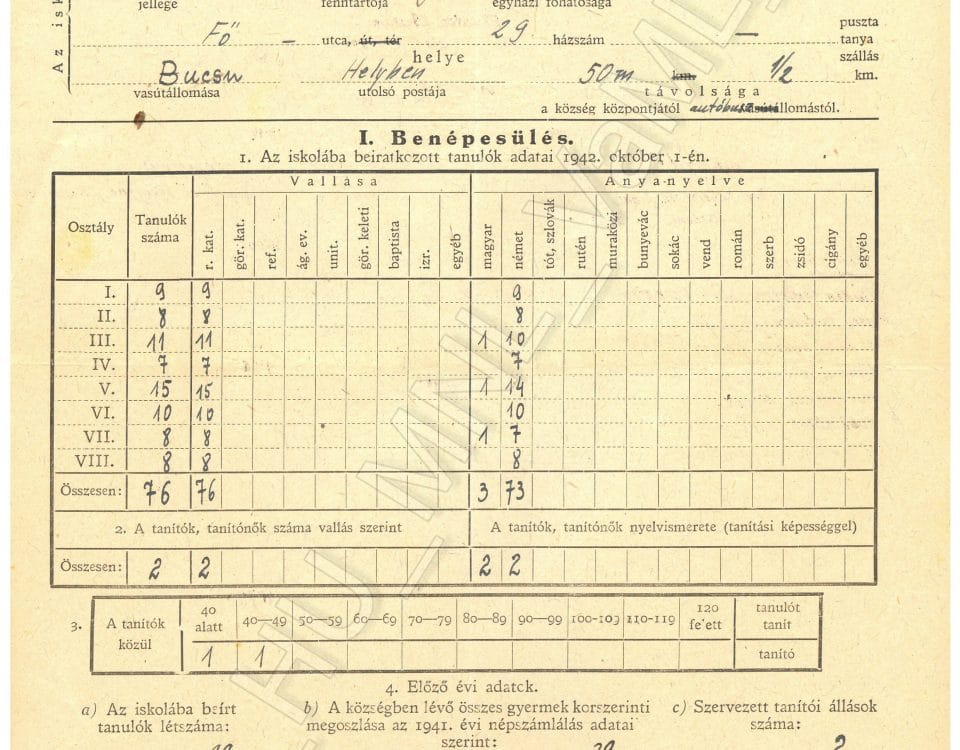 jellege fenntartója egyházi főhatósága
Az isk
Fő — utca, út, tér 29 házszám — puszta tanya szállás
helye
Bucsu Helyben 50 m km. 1/2 km.
vasútállomása utolsó postája távolsága
a község központjától autóbusz vasútállomástól.
I. Benépesülés.
1. Az iskolába beiratkozott tanulók adatai 1942. október 1-én.
Osztály Tanulók száma Vallása Anyanyelve
r. kat. gör. kat. ref. ág. ev. unit. gör. keleti baptista izr. egyéb magyar német tót, szlovák rutén muraközi bunyevác sokác vend román szerb zsidó cigány egyéb
I. 9 9 9
II. 8 8 8
III. 11 11 1 10
IV. 7 7 7
V. 15 15 1 14
VI. 10 10 10
VII. 8 8 1 7
VIII. 8 8 8
Összesen: 76 76 3 73
2. A tanítók, tanítónők száma vallás szerint A tanítók, tanítónők nyelvismerete (tanítási képességgel)
Összesen: 2 2 2 2
3. A tanítók közül 40 alatt 40—49 50—59 60—69 70—79 80—89 90—99 100-109 110-119 120 felett tanulót tanít
1 1 tanító
4. Előző évi adatok.
a) Az iskolába beírt tanulók létszáma:
b) A községben lévő összes gyermek korszerinti megoszlása az 1941. évi népszámlálás adatai szerint:
c) Szervezett tanítói állások száma:
HU_MNL_VaML